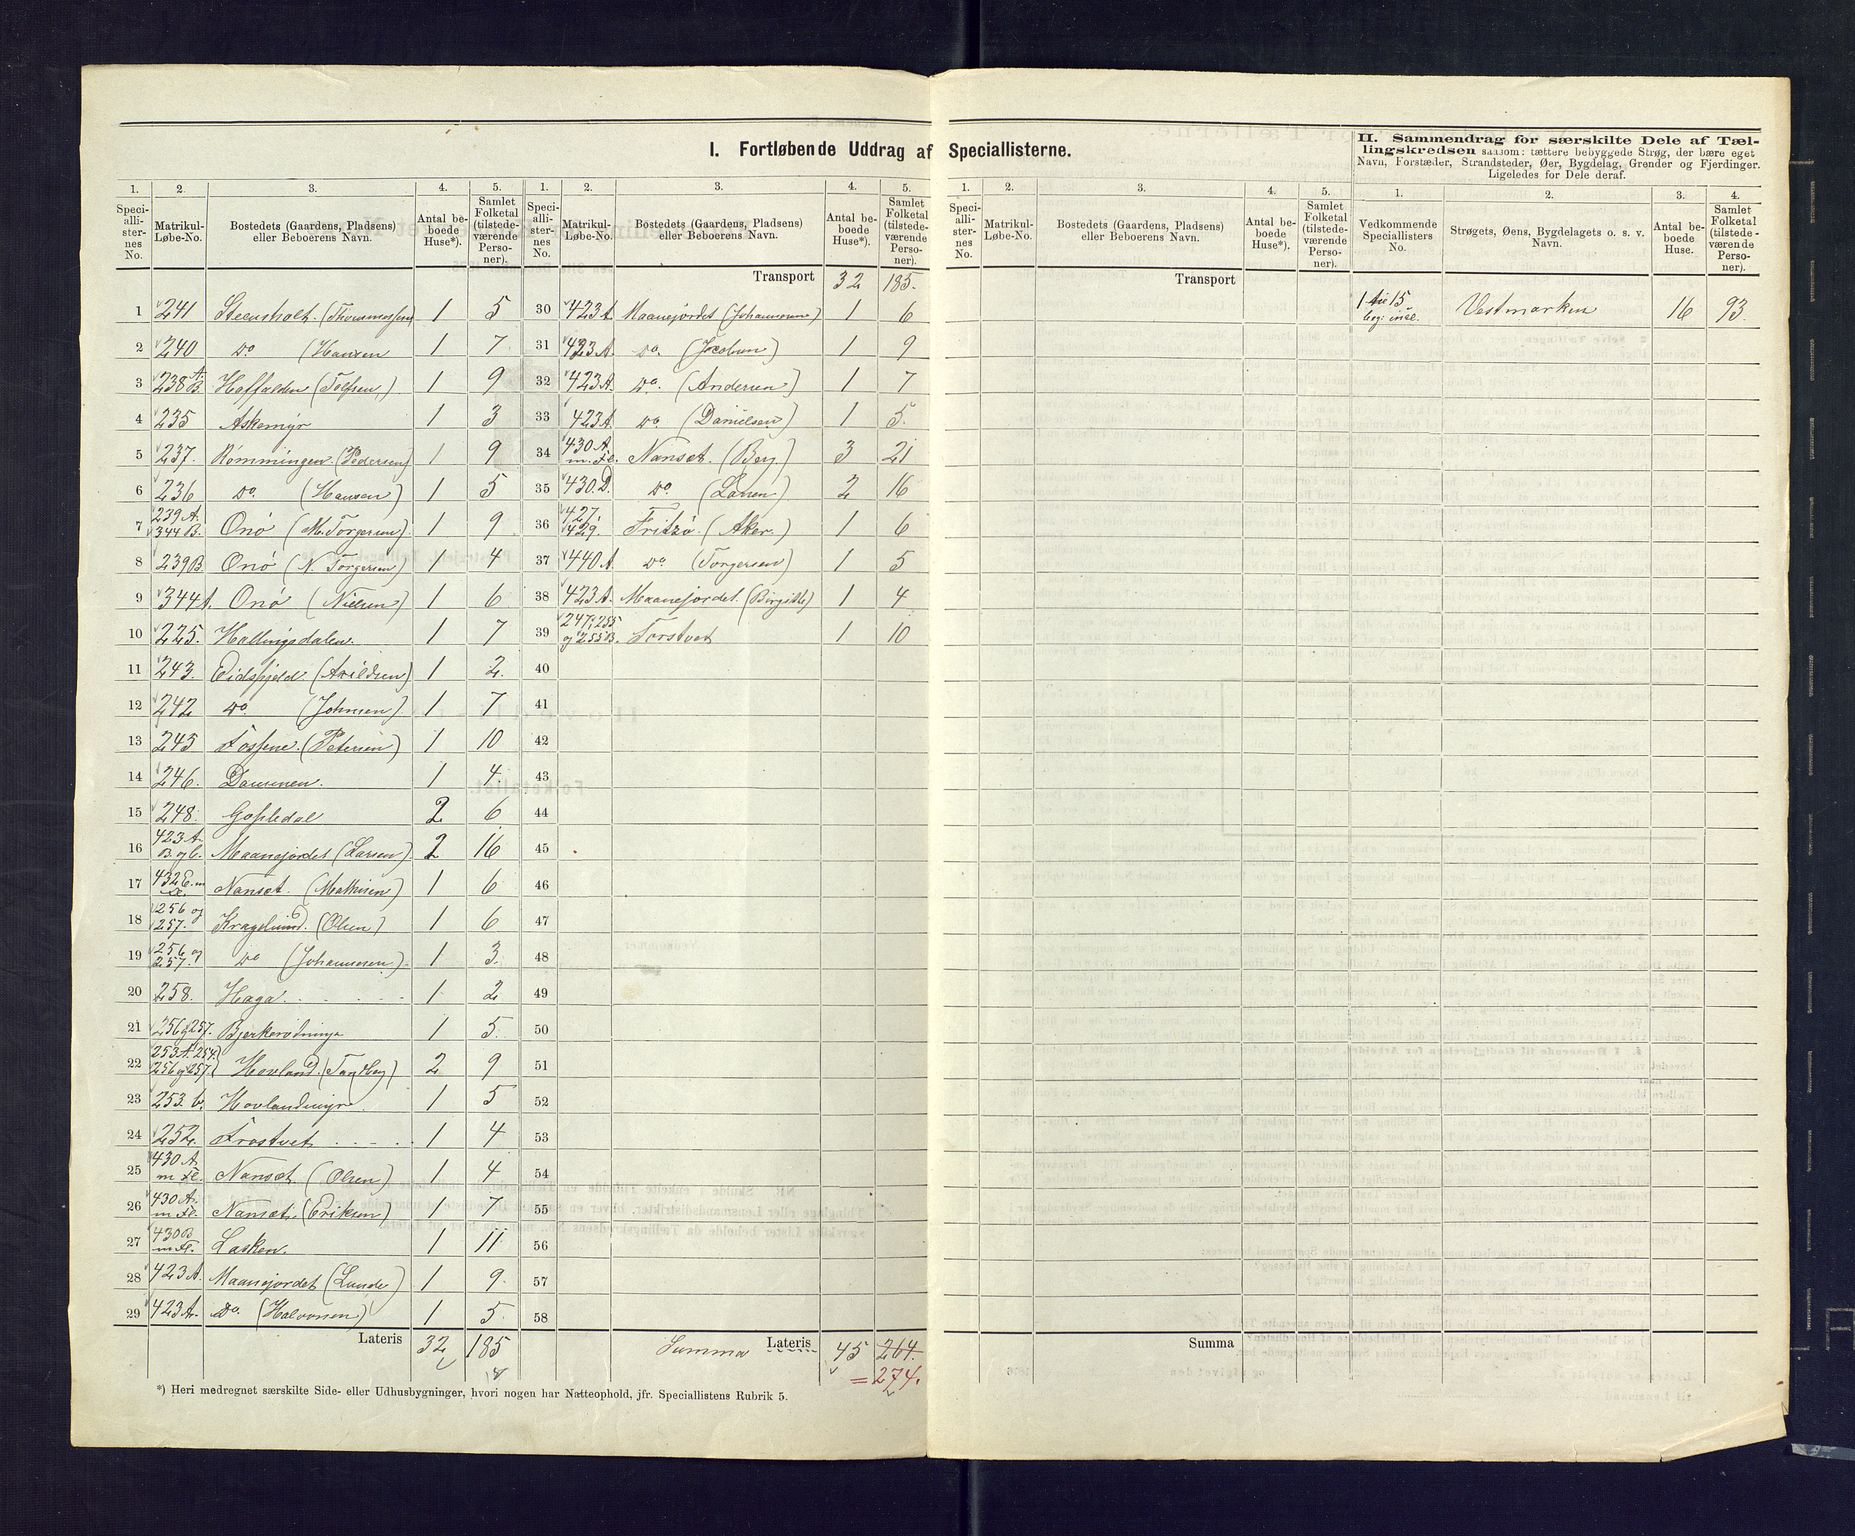 I. Fortløbende Uddrag af Speciallisterne.
II. Sammendrag for særskilte Dele af Tællingskredsen saasom: tættere bebyggede Strøg, der bære eget
Navn, Forstæder, Strandsteder, Øer, Bygdelag, Grender og Fjerdinger.
Ligeledes for Dele deraf.
1. 2. 3. 4. 5. 1. 2. 3. 4. 5. 1. 2. 3. 4. 5. 1. 2. 3. 4.
Speciallisternes No. Matrikul-Løbe-No. Bostedets (Gaardens, Pladsens) eller Beboerens Navn. Antal beboede Huse*). Samlet Folketal (tilstedeværende Personer).
Speciallisternes No. Matrikul-Løbe-No. Bostedets (Gaardens, Pladsens) eller Beboerens Navn. Antal beboede Huse*). Samlet Folketal (tilstedeværende Personer).
Speciallisternes No. Matrikul-Løbe-No. Bostedets (Gaardens, Pladsens) eller Beboerens Navn. Antal beboede Huse*). Samlet Folketal (tilstedeværende Personer).
Vedkommende Speciallisters No. Strøgets, Øens, Bygdelagets o. s. v. Navn. Antal beboede Huse. Samlet Folketal (tilstedeværende Personer).
1 241 Steensholt (Thommesen) 1 5
2 240 Do (Hansen 1 7
3 238 A. B. Haffalden (Tolfsen) 1 9
4 235 Askemyr 1 3
5 237. Rømmingen (Pedersen) 1 9
6 236 Do. (Hansen) 1 5
7 239 A. 344 B. Onø (M. Torgersen) 1 9
8 239 B. Onø (N. Torgersen) 1 4
9 344 A. Onø (Nielsen) 1 6
10 225. Hallingsdalen. 1 7
11 243. Eidsfjeld (Arildsen) 1 2.
12 242 Do. (Johnsen) 1 7
13 245 Fossene. (Petersen) 1 10
14 246. Dammen. 1 4.
15 248. Gopledal 2 6
16 423 A. B. og C. Maanejordet (Larsen) 2 16
17 432 E. m Fl. Nanset. (Mathisen) 1 6
18 256 og 257. Kragelund (Olsen) 1 6
19 256 og 257. Do (Johannesen) 1 3.
20 258. Haga 1 2
21 256 og 257. Bjerkerødninga 1 5.
22 253 A. 254. 256 og 257. Hovland (Tandberg) 2 9
23 253. b. Hovlandmyr 1 5
24 252. Frostvet 1 4
25 430 A. m Fl. Nanset (Olsen) 1 4
26 430 A. m Fl. Nanset. (Eriksen) 1 7
27 430 B m Fl. Lasken. 1 11
28 423 A. Maanejordet (Lunde) 1 9
29 423 A. Do. (Halvorsen) 1 5
Lateris 32 185
Transport 32 185.
30 423 A Maanejordet (Johannesen) 1 6
31 423 A. Do. (Jacobsen) 1 9
32 423 A. Do. (Andersen) 1 7
33 423 A. Do (Danielsen) 1 5.
34 430 A. m. Fl. Nanset. (Berg.) 3 21
35 430. D. Do (Larsen) 2 16
36 427. 429. Fritzø. (Aker.) 1 6
37 440 A. Do (Torgersen) 1 5
38 423 A. Maanejordet (Birgitte) 1 4
39 247, 255 og 255 B. Torstvet 1 10
40
41
42
43
44
45
46
47
48
49
50
51
52
53
54
55
56
57
58
Summa Lateris 45 264.
= 274.
Transport
Summa
1 til 15 beg: incl. Vestmarken 16 93.
*) Heri medregnet særskilte Side- eller Udhusbygninger, hvori nogen har Natteophold, jfr. Speciallistens Rubrik 5.